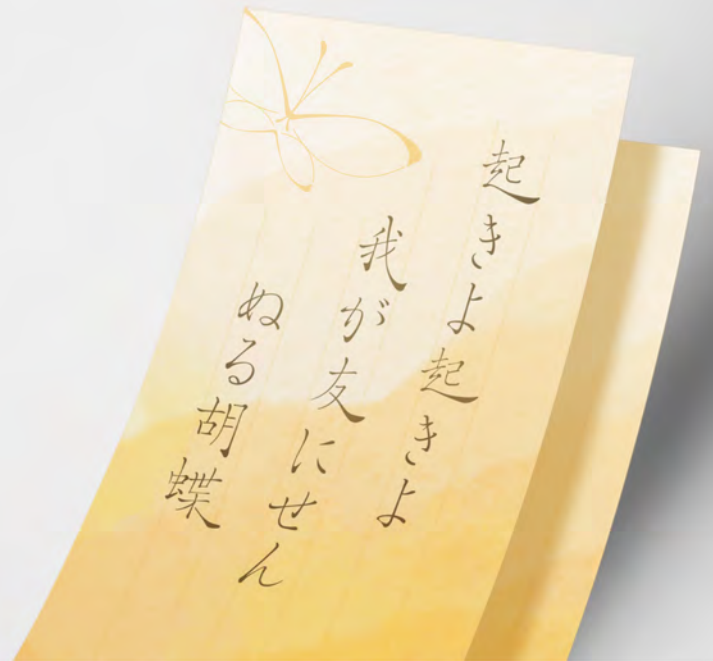 起きよ起きよ
我が友にせん
ぬる胡蝶